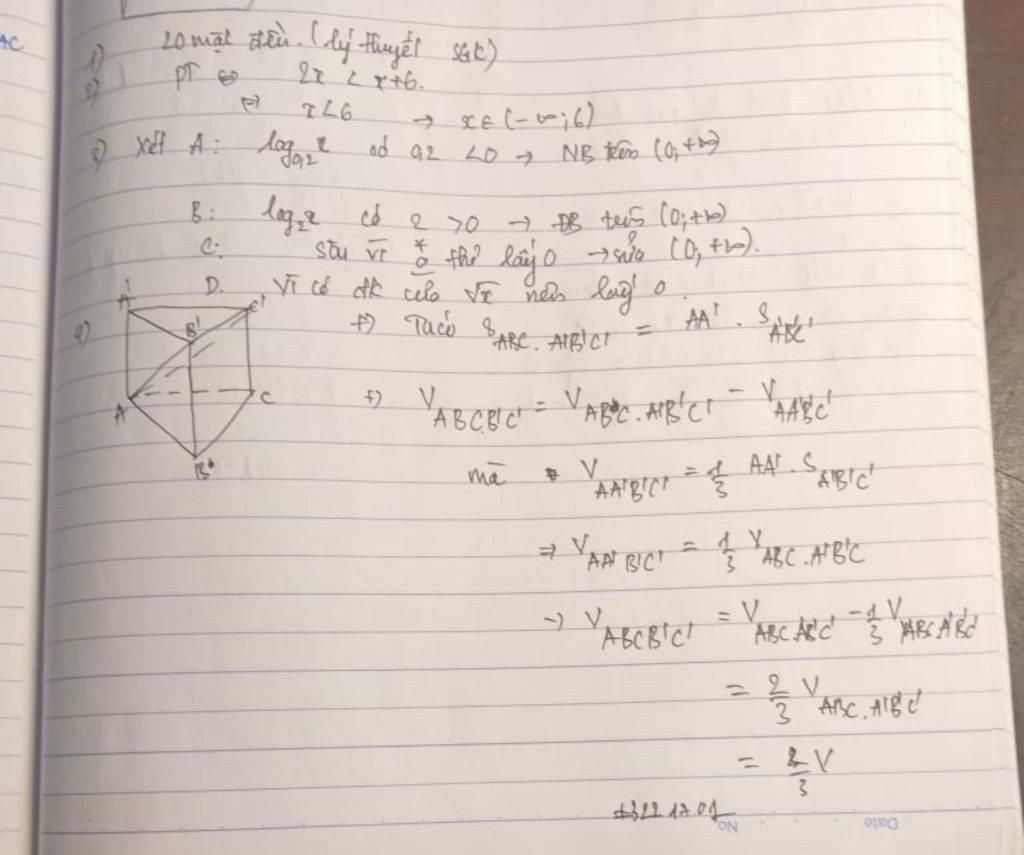 AC
1) 20 mặt đều. (lý thuyết SGK)
2) PT ⇔ 2x < x+6.
⇔ x<6 → x∈ (-∞;6)
3) Xét A: log_{0,2} x có 0,2 <0 → NB trên (0;+∞)
B: log_2 x có 2 >0 → ĐB trên (0;+∞)
C: thì lấy 0 → (0,+∞).
D. Vì có đk của √x nên lấy 0.
4) +) Ta có S_{ABC.A'B'C'} = AA' . S_{A'B'C'}
+) V_{ABCB'C'} = V_{ABC.A'B'C'} - V_{AA'B'C'}
mà V_{AA'B'C'} = 1/3 AA' . S_{A'B'C'}
⇒ V_{AA'B'C'} = 1/3 V_{ABC.A'B'C}
→ V_{ABCB'C'} = V_{ABC.A'B'C'} - 1/3 V_{ABC.A'B'C'}
= 2/3 V_{ABC.A'B'C'}
= 2/3 V
A' B' C'
A C
B
No
Date